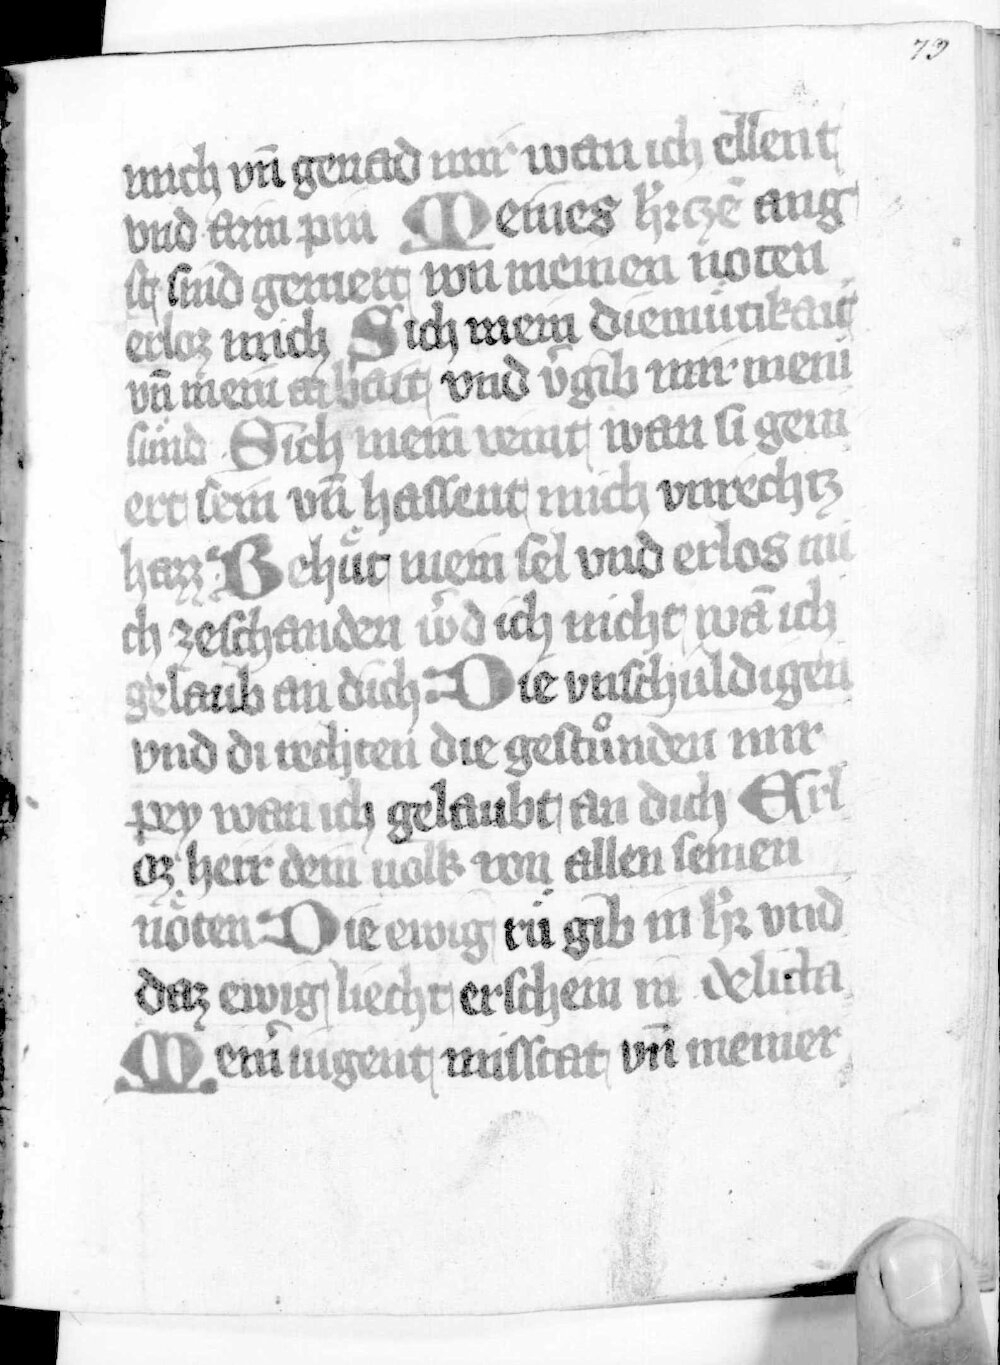 79
mich vn̄ genad mir wan ich ellent
vnd arm pin Meines h̕rczē ang
st sind gemert von meinen noten
erloz mich Sich mein diemütikait
vn̄ mein arbait vnd v̕gib mir mein
sünd Sich mein veint wan si gem
ert sein vn̄ hassent mich vnrechtz
hazz Behüt mein sel vnd erlos mi
ch zeschanden w̕d ich nicht wā ich
gelaub an dich Die vnschuldigen
vnd di rechten die gestůnden mir
pey wan ich gelaubt an dich Erl
oz herr dein uolk von allen seinen
nöten Die ewig rü gib in h̕r vnd
daz ewig liecht erschein in delicta
Mein̕ iugent misstat vn̄ meiner